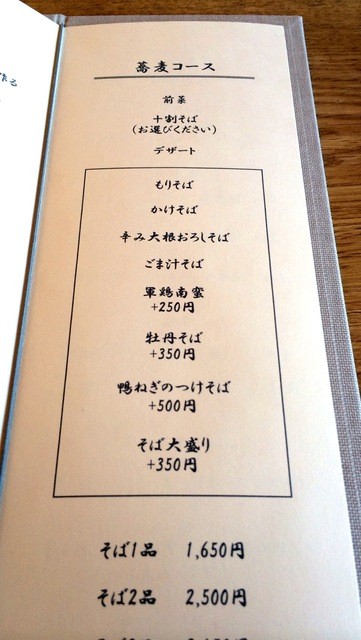 蕎麦コース
前菜
十割そば
(お選びください)
デザート
もりそば
かけそば
辛み大根おろしそば
ごま汁そば
軍鶏南蛮
+250円
牡丹そば
+350円
鴨ねぎのつけそば
+500円
そば大盛り
+350円
そば1品 1,650円
そば2品 2,500円